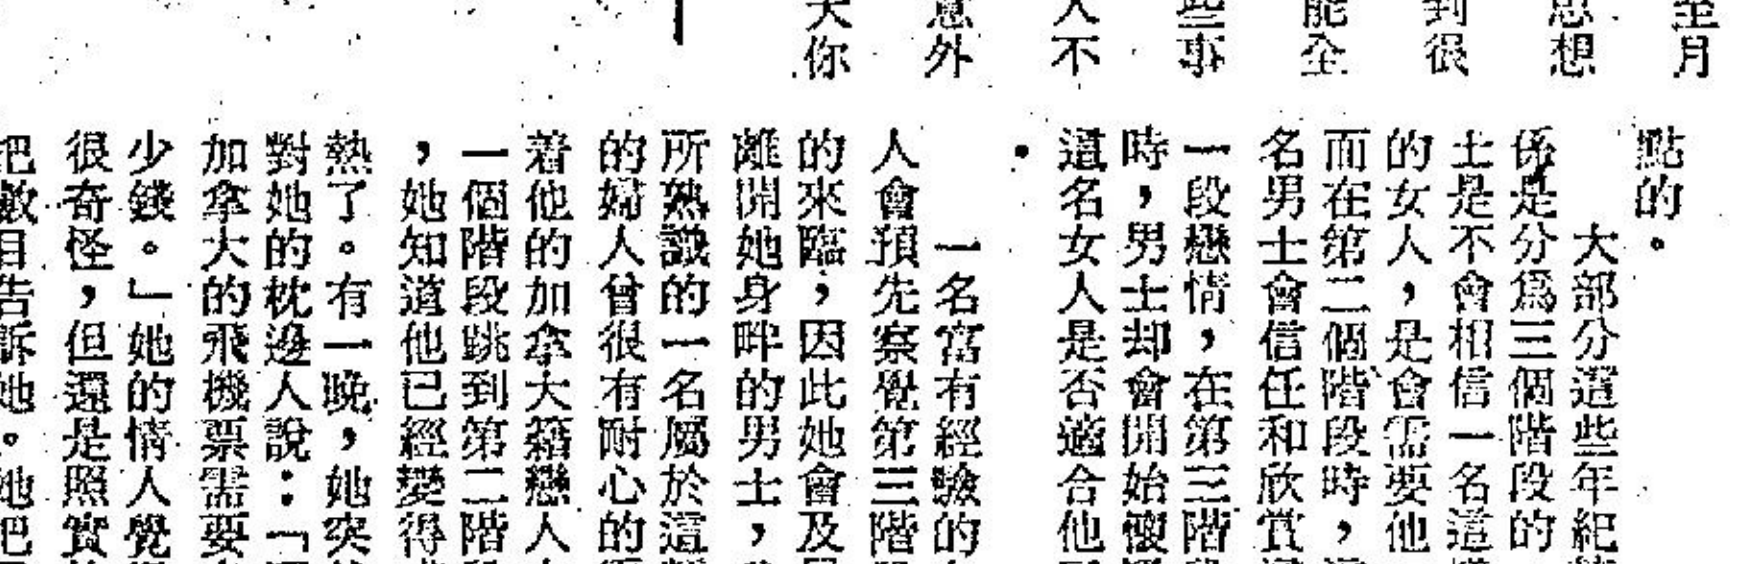 至月
思想
到很
能全
些事
人不
意外
天你
點的。
大部分這些年紀
係是分爲三個階段的
士是不會相信一名這
的女人，是會需要他
而在第二個階段時，
名男士會信任和欣賞
一段戀情，在第三階
時，男士却會開始懷
這名女人是否適合他
。
一名富有經驗的
人會預先察覺第三階
的來臨，因此她會及
離開她身畔的男士，
所熟識的一名屬於這
的婦人曾很有耐心的
着他的加拿大籍戀人
一個階段跳到第二階
，她知道他已經變得
熱了。有一晚，她突
對她的枕邊人說：「
加拿大的飛機票需要
少錢。」她的情人覺
很奇怪，但還是照實
把數目告訴她。她把